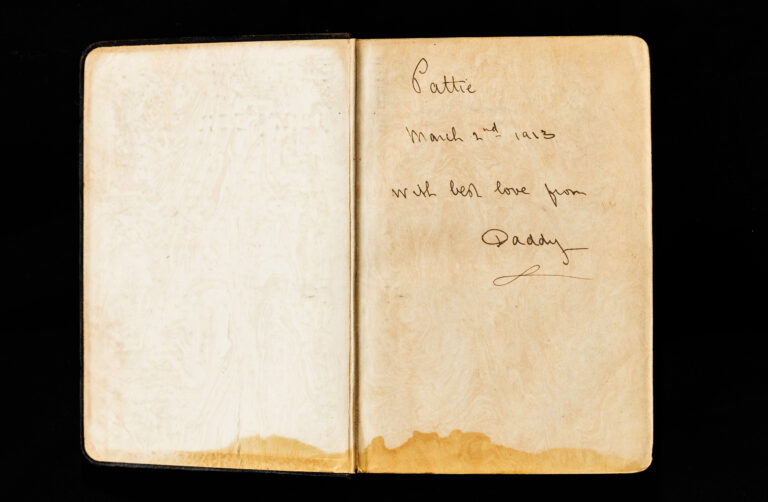 Pattie
March 2nd 1913
with best love from
Daddy